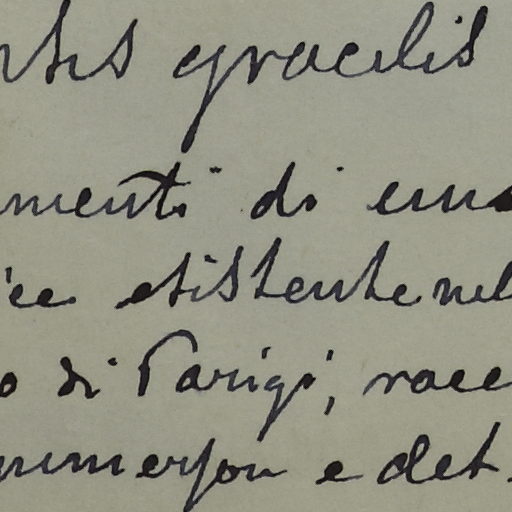 gracilis
menti di
esistente nel
o di Parigi, racc
merson e det.